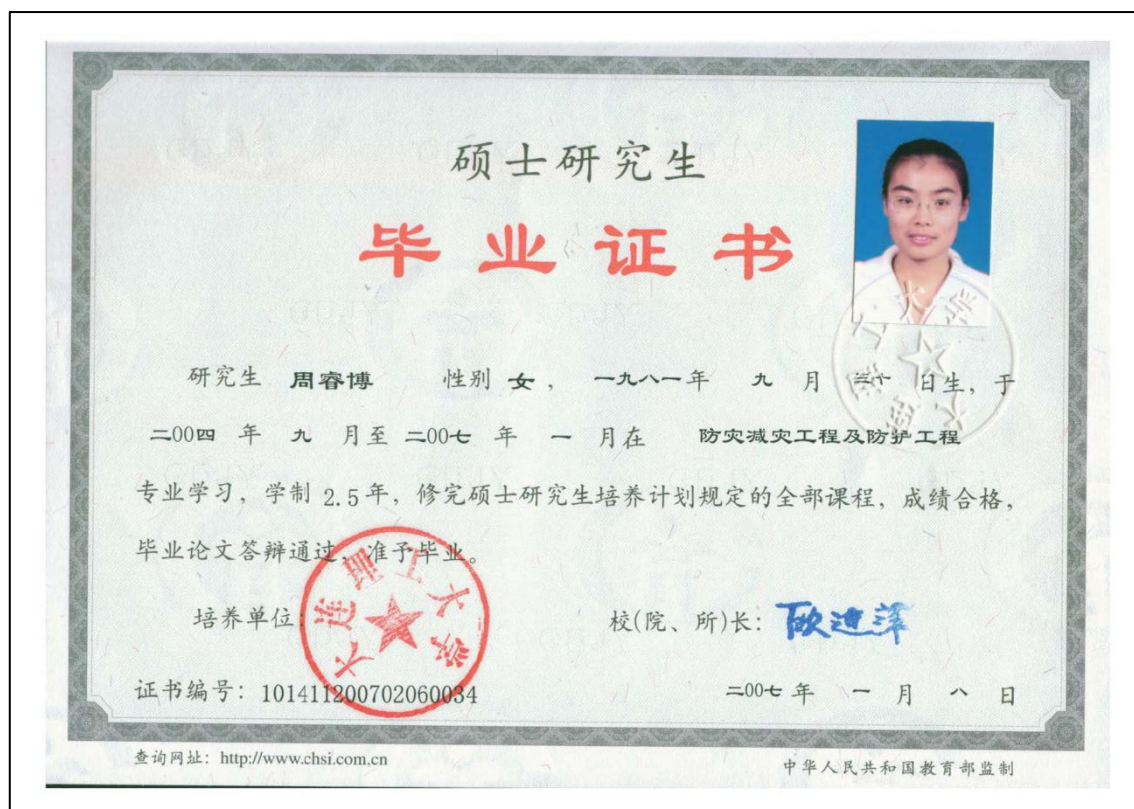 硕士研究生
毕业证书
研究生 周睿博 性别 女， 一九八一年 九 月 三十 日生，于
二00四 年 九 月至 二00七 年 一 月在 防灾减灾工程及防护工程
专业学习，学制 2.5 年，修完硕士研究生培养计划规定的全部课程，成绩合格，
毕业论文答辩通过，准予毕业。
培养单位：
大连理工大学
校(院、所)长：欧进萍
证书编号：101411200702060034
二00七 年 一 月 八 日
查询网址：http://www.chsi.com.cn
中华人民共和国教育部监制
大连理工大学